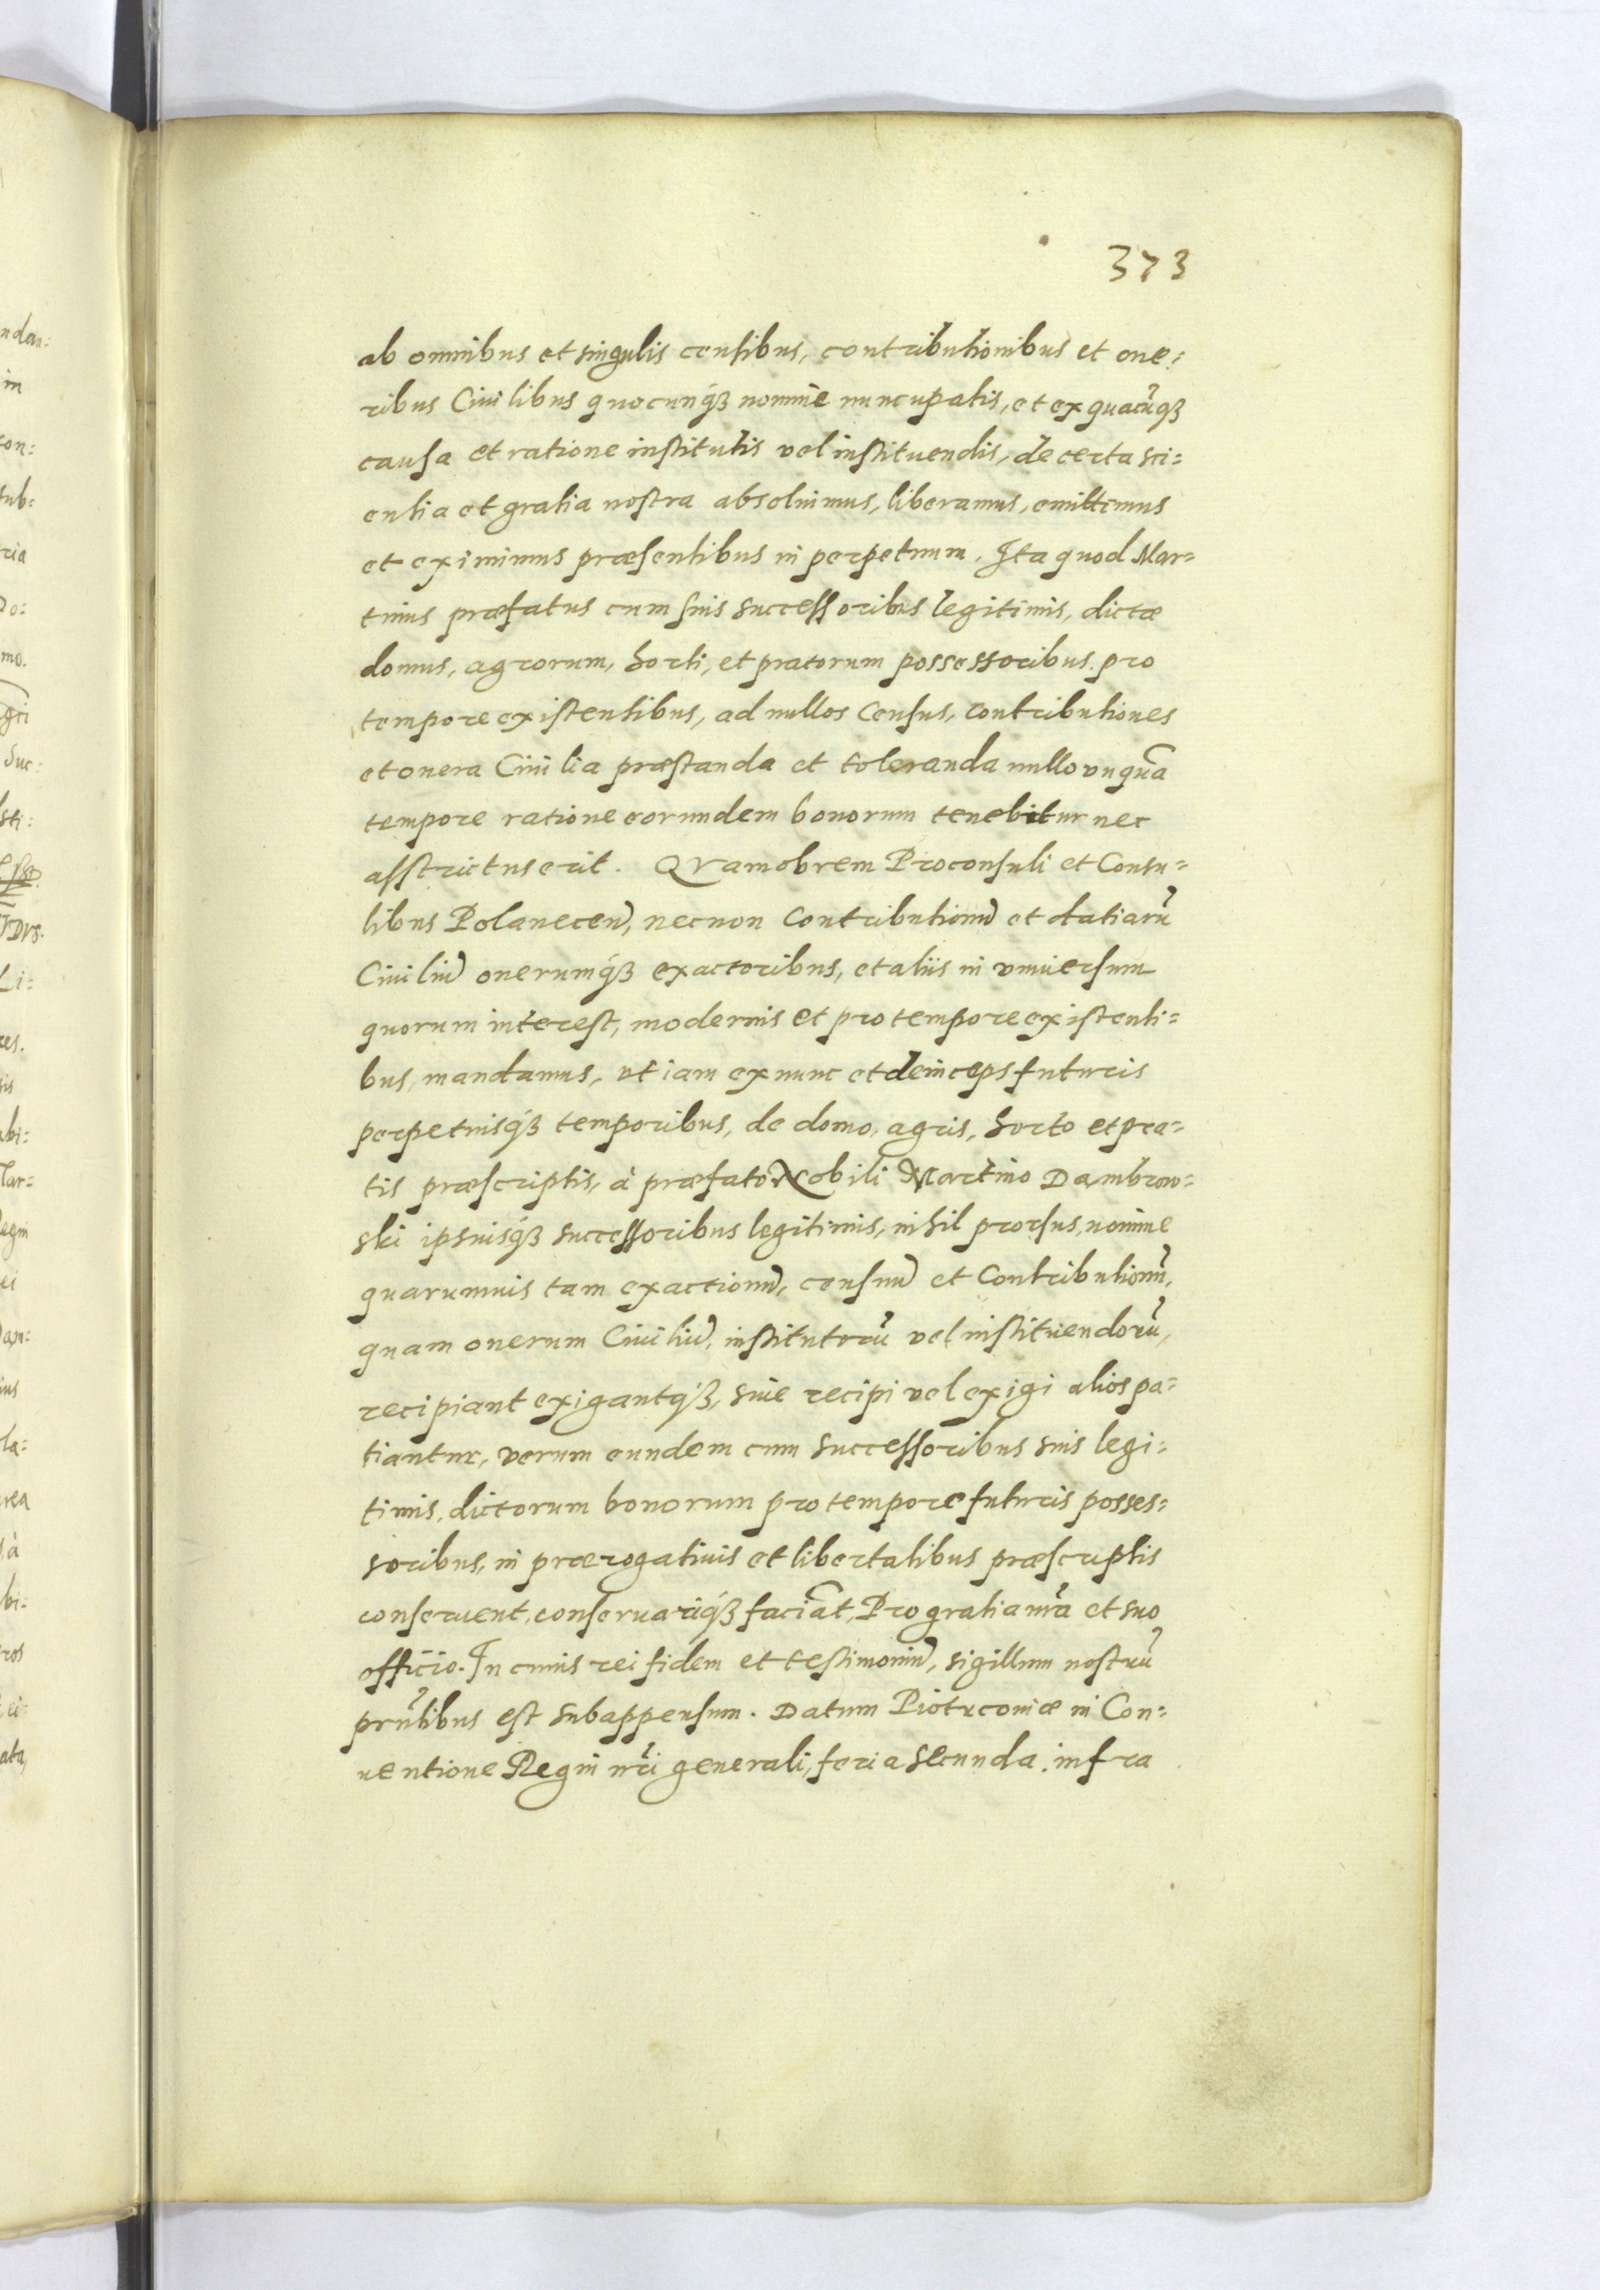 373
ab omnibus et singulis censibus, contributionibus et one=
ribus Ciuilibus quocunq́ꝫ nomine nuncupatis, et ex quacūqꝫ
causa et ratione institutis vel instituendis, de certa sci=
entia et gratia nostra absoluimus, liberamus, emittimus
et eximimus præsentibus in perpetuum. Ita quod Mar=
tinus præfatus cum suis successoribus legitimis, dictæ
domus, agrorum, horti, et pratorum possessoribus pro
tempore existentibus, ad nullos Census, contributiones
et onera Ciuilia præstanda et toleranda nullo vnquā
tempore ratione eorundem bonorum tenebitur nec
asstrictus erit. QVamobrem Proconsuli et Consu=
libus Polanecen̄, necnon Contributionū et datiarū
Ciuiliū onerumq́ꝫ exactoribus, et aliis in vniuersum
quorum interest, modernis et pro tempore existenti=
bus, mandamus, vt iam ex nunc et deinceps futuris
perpetuisq́ꝫ temporibus, de domo, agris, horto et pra=
tis præscriptis, à præfato Nobili Martino Dambrow=
ski ipsiusq́ꝫ successoribus legitimis, nihil prorsus, nomine
quarumuis tam exactionū, censuū et Contributionū,
quam onerum Ciuiliū, institutorū vel instituendorū,
recipiant exigantq́ꝫ, siue recipi vel exigi alios pa=
tiantur, verum eundem cum successoribus suis legi=
timis, dictorum bonorum pro tempore futuris posses=
soribus, in prærogatiuis et libertatibus præscriptis
conseruent, conseruariq́ꝫ faciāt, Pro gratia nr̄a et suo
officio. In cuius rei fidem et testimoniū, sigillum nostrū
prn̄tibus est subappensum. Datum Piotrcouiæ in Con=
uentione Regni nr̄i generali, feria secunda infra
ndan:
in
con:
sub:
ria
Do:
mo.
gri
Suc:
sti:
Li:
res.
sis
abi:
Mar:
Regni
ei
Dam:
ius
la:
rea
à
bi:
ros
ei:
ata,